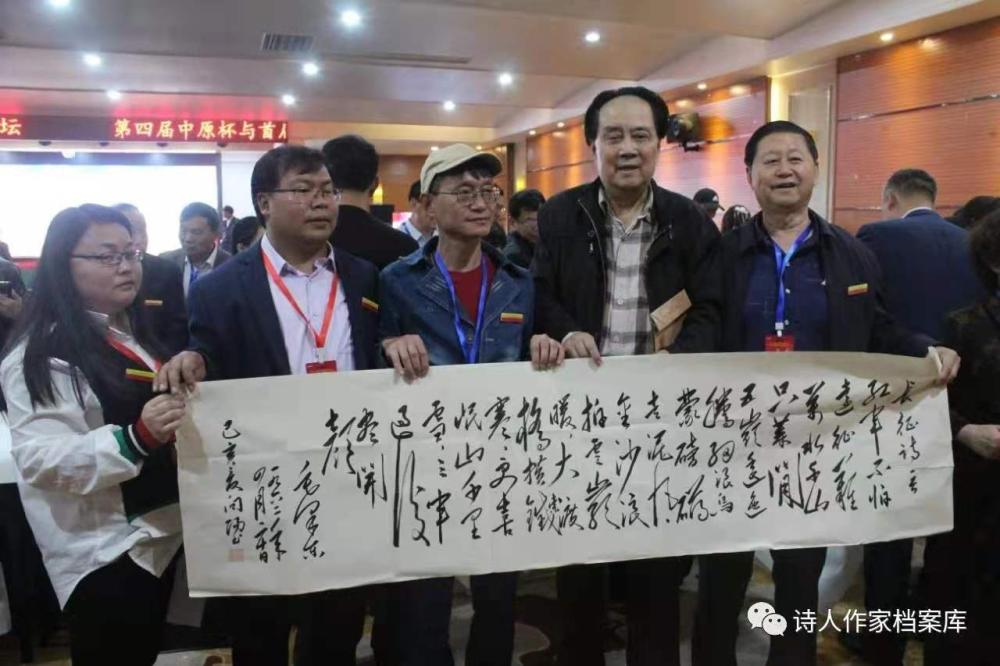 坛 第四届中原杯与首届
长征诗
红军不怕
远征难
万水千山
只等闲
五岭逶迤
腾细浪乌
蒙磅礴
走泥丸
金沙浪
拍云崖
暖大渡
桥横铁
寒更喜
岷山千里
雪三军
过后
尽开
颜
毛泽东
一九六二年
四月二十日
己亥夏
诗人作家档案库